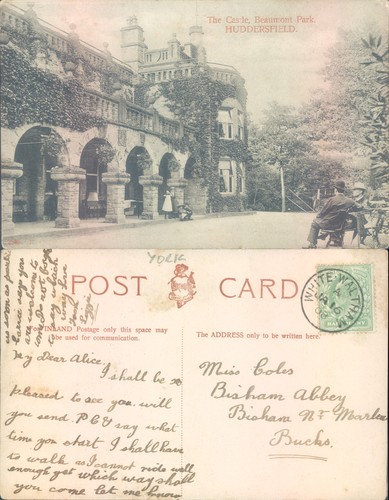 The Castle, Beaumont Park.
HUDDERSFIELD.
York
POST CARD
INLAND Postage only this space may
be used for communication.
The ADDRESS only to be written here.
WHITE WALTHAM
My Dear Alice,
I shall be so
pleased to see you. will
you send P.C & say what
time you start I shall have
to walk as I cannot ride well
enough get which way shall
you come let me know
as soon as
say you
are welcome to
come
to say which
way
Miss Coles
Bisham Abbey
Bisham Nr Marlow
Bucks.